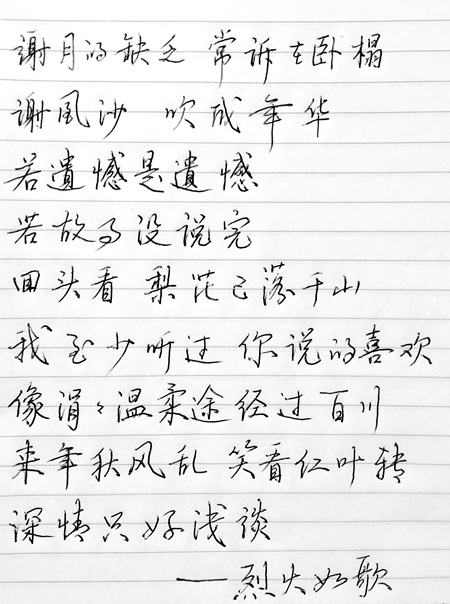 谢月的缺乏 常诉在卧榻
谢風沙 吹成年华
若遺憾是遺憾
若故事没说完
回头看 梨花已落千山
我至少听过 你说的喜欢
像涓々温柔途经过百川
来年秋风乱 笑看红叶转
深情只好浅谈
——烈火如歌